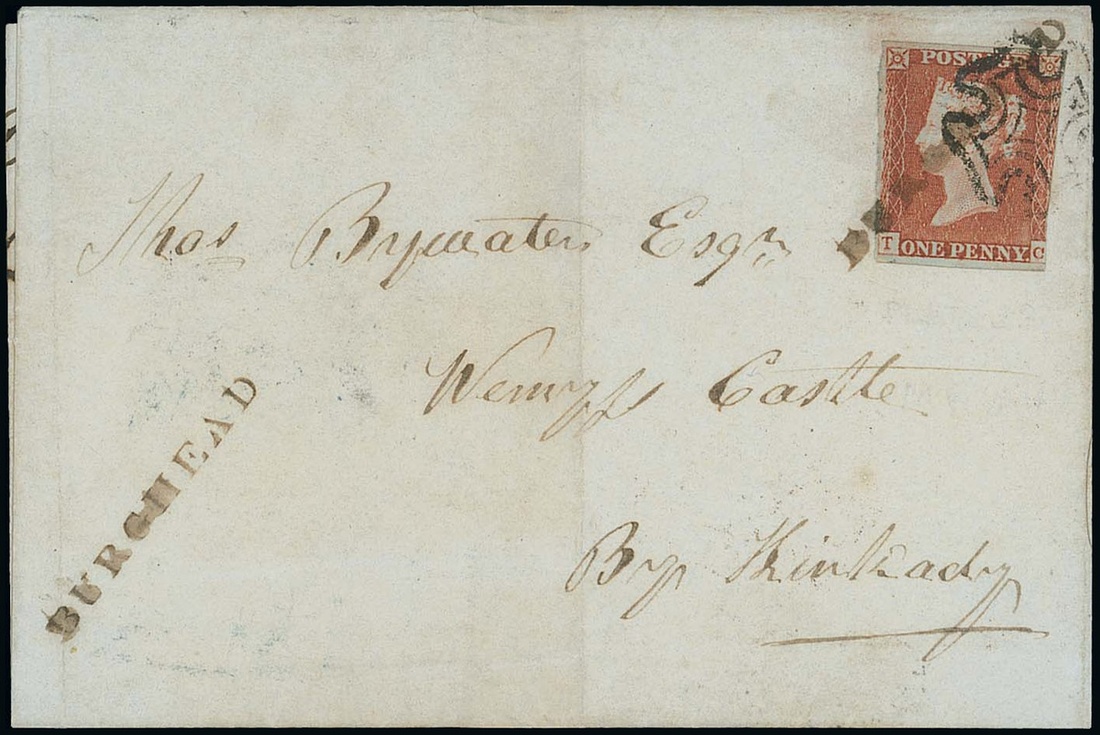 POSTAGE
T ONE PENNY. C
Thos Bywater Esqr
Wemyss Castle
By Kirkcady
BURGHEAD